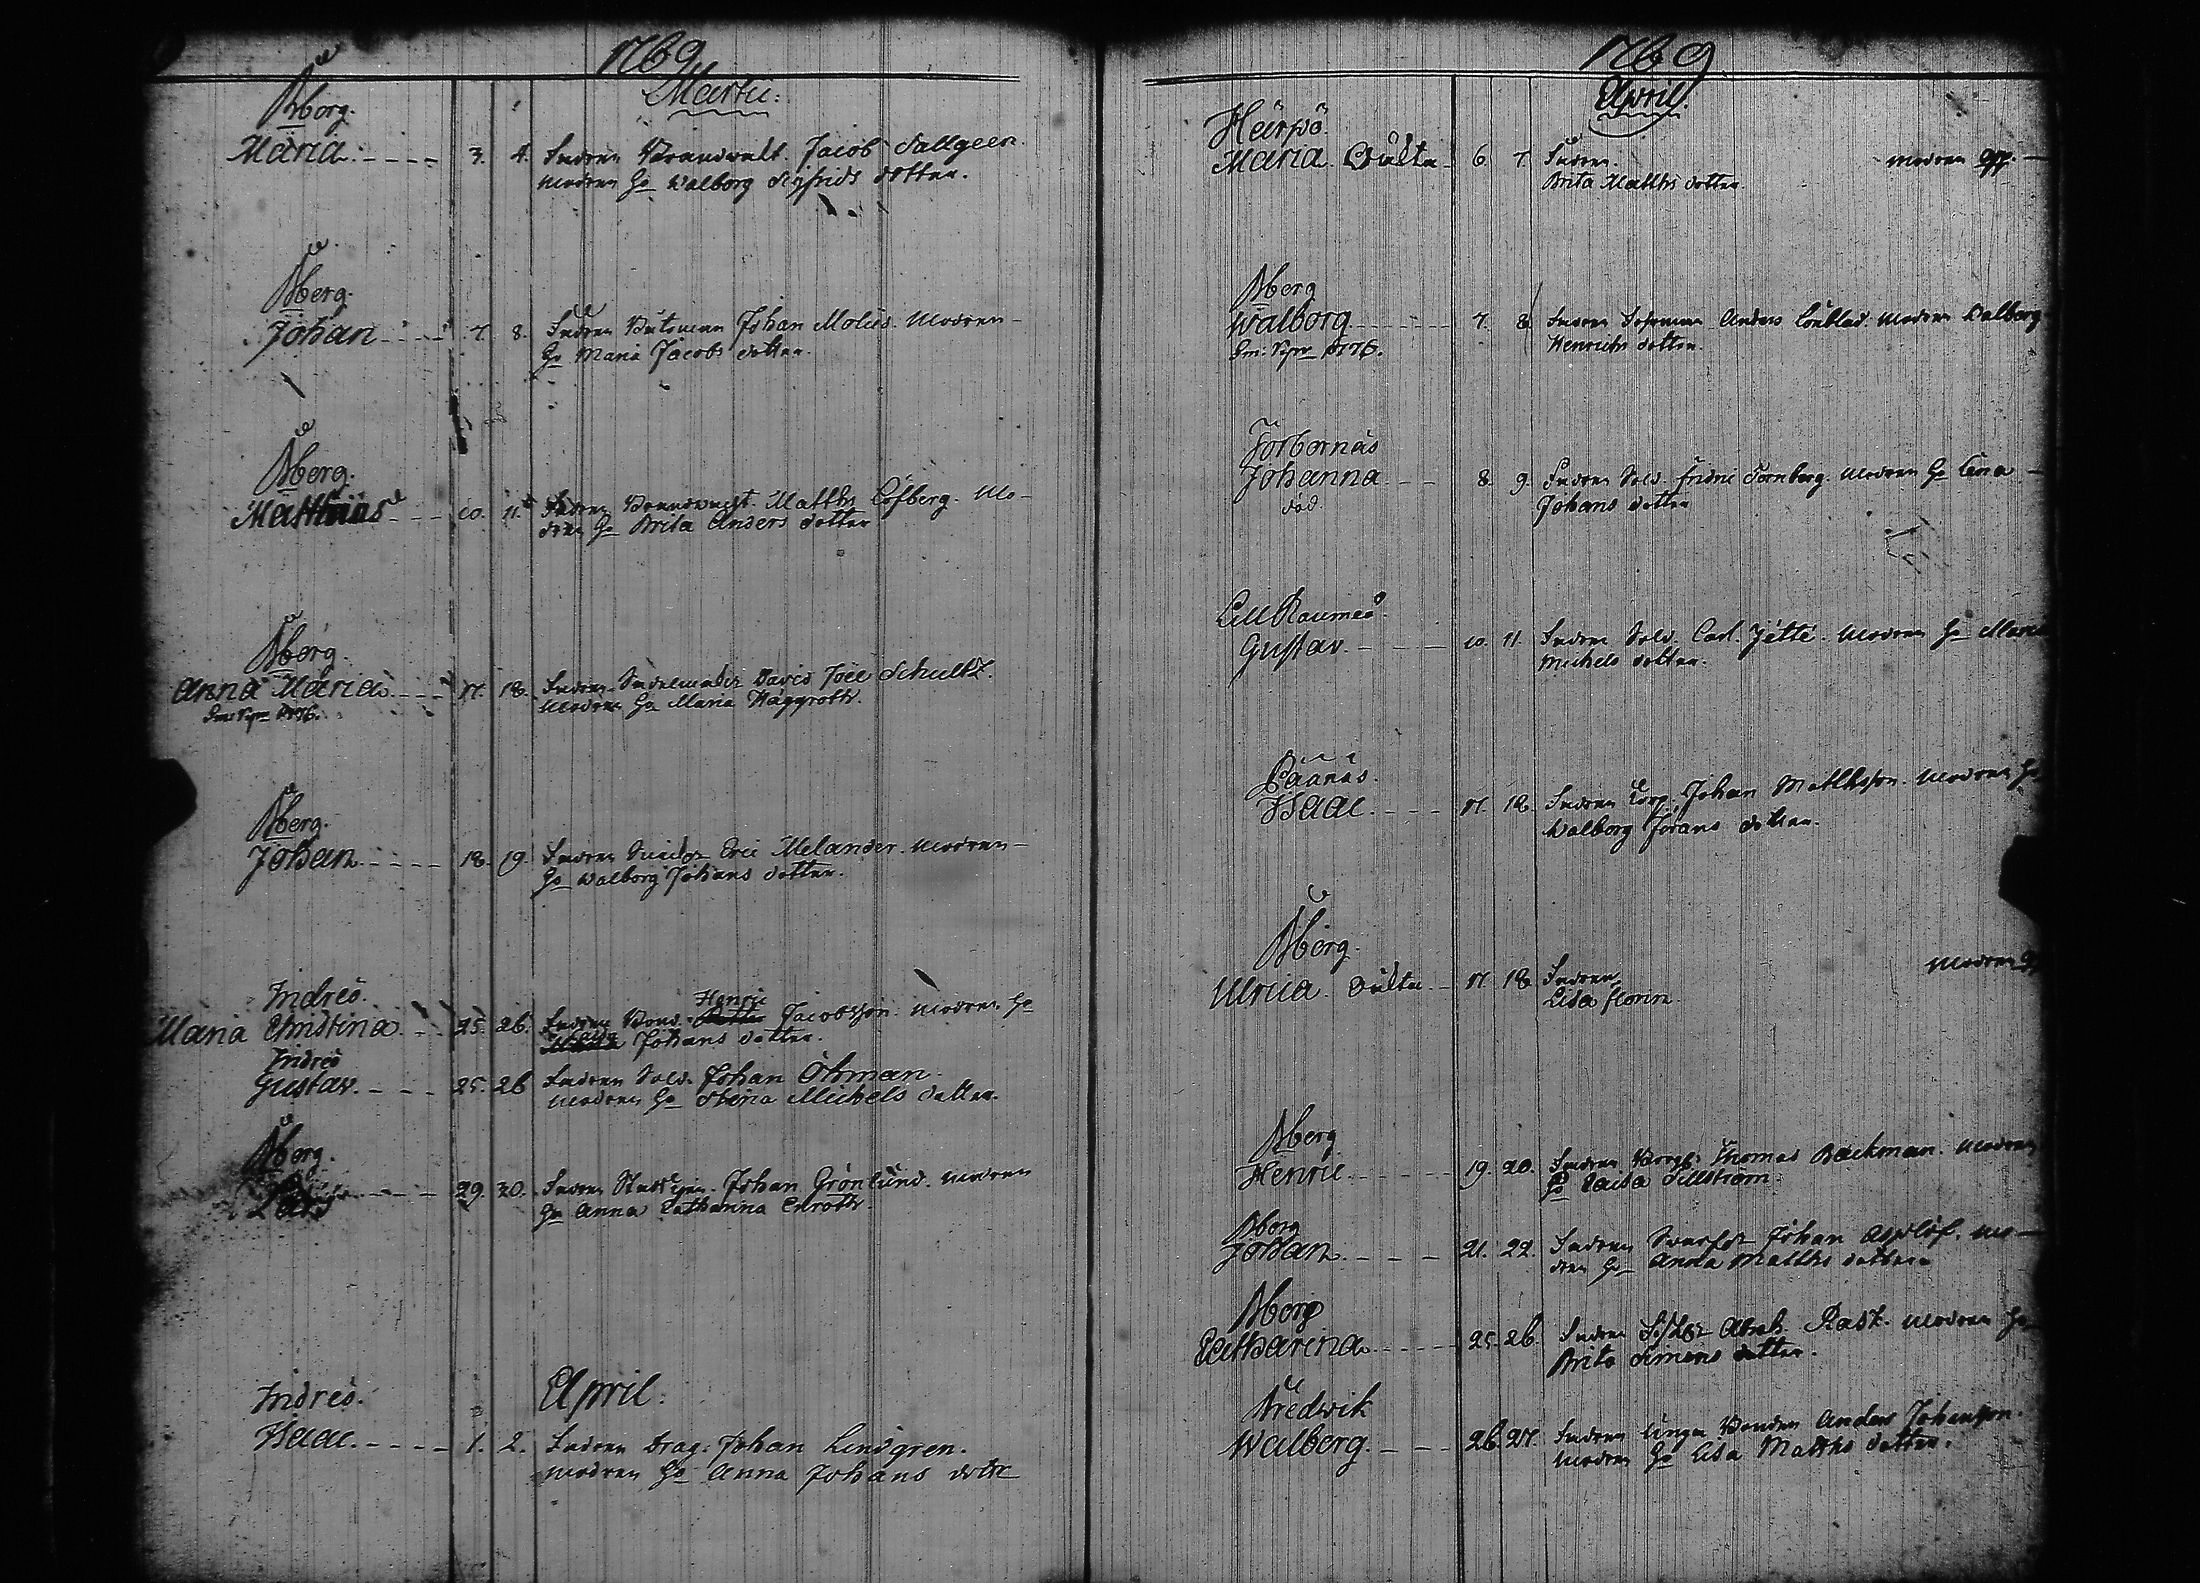 1769
Martii:
Bborg.
Maria. 3. 4. Fadren Brandwakt. Jacob Sallgeen.
modren Ha Walborg Sigfrids dotter.
Bberg.
Johan 7. 8. Fadren Båtsman Johan Molin. Modren
Ha Maria Jacobs dotter.
Bberg.
Matthias 10. 11. Fadren Brandwacht. Matths Löfberg. Mo-
dren Ha Brita Anders dotter
Bberg.
Anna Maria 17. 18. Fadren Sadelmakr David Joel Schultz.
1776. modren Ha Maria Häggroth.
Bberg.
Johan 18. 19. Fadren Eric Melander. modren
Ha Walborg Johans dotter.
Indreö.
Maria Christina. 25. 26. Fadren Bond. Henric Jacobsson. modren. Ha
Johans dotter.
Indreö
Gustav. 25. 26 Fadren Sold. Johan Öhman.
modren Ha Stina Michels dotter.
Bberg.
Lars 29. 30. Fadren Johan Grönlund. modren
Ha Anna Catharina Enroth.
April.
Indreö.
Isaac. 1. 2. Fadren Drag: Johan Lindgren.
modren Ha Anna Johans dottr
1769
April.
Härpö.
Maria. Oäkta 6. 7. Fadren. modren
Brita Matths dotter
Bberg
Walborg. 7. 8. Fadren Anders Lönblad. modren Walborg
1776. Henrichs dotter.
Torbornäs
Johanna 8. 9. Fadren Sold. Fridric Tornberg. Modren Ha Lena
död. Johans dotter
Lill Raumeö.
Gustav. 10. 11. Fadren Sold. Carl Jätte. Modren Ha Maria
Michels dotter.
Päänäs.
Isaac. 17. 18. Fadren Corp. Johan Matthsson. modren Ha
Walborg Jörans dotter.
Bberg.
Ulrica. Oäkta. 17. 18. Fadren modren
Lisa Florin.
Bberg
Henric 19. 20. Fadren Borgr: Thomas Backman. modren
Ha Caisa Sellström.
Bborg
Johan 21. 22. Fadren Johan Asplöf. mo-
dren Ha Anna Matths dotter
Bberg
Catharina 25. 26. Fadren Abrah. Rask. modren Ha
Brita Simons dotter.
Tredwik
Walberg. 26. 27. Fadren unga Bonden Anders Johansson.
modren Ha Lisa Matths dotter.